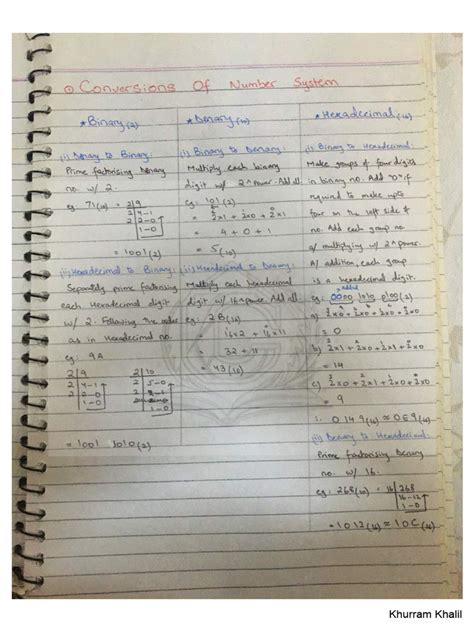 Conversions Of Number System
* Binary(2)
(i) Denary to Binary:
Prime factorising Denary
no. w/ 2.
= 1001(2)
(ii) Hexadecimal to Binary:
Separately prime factorising
each Hexadecimal digit
w/ 2. Following the order
as in Hexadecimal no.
eg. 9A
2|9 2|10
2|4-1 2|5-0
2|2-0
1-0 1-0
= 1001 1010(2)
* Denary(10)
(i) Binary to Denary:
Multiply each binary
digit w/ 2^power. Add all.
eg. 101(2)
= 4 + 0 + 1
= 5(10)
(ii) Hexadecimal to Denary:
Multiply each Hexadecimal
digit w/ 16^power. Add all.
eg: 2B(16)
= 16x2 + 16x11
= 32 + 11
= 43(10)
* Hexadecimal(16)
(i) Binary to Hexadecimal:
Make groups of four digits
in binary no. Add "0" if
required to make upto
four on the left side of
no. Add each group no
w/ multiplying w/ 2^power.
A/ addition, each group
is a hexadecimal digit.
added
a)
= 0
b)
c)
= 9
(ii) Denary to Hexadecimal:
Prime factorising Denary
no. w/ 16.
eg: 268(10) = 16|268
16-12
1-0
= 1012(16) ≈ 10C(16)
Khurram Khalil